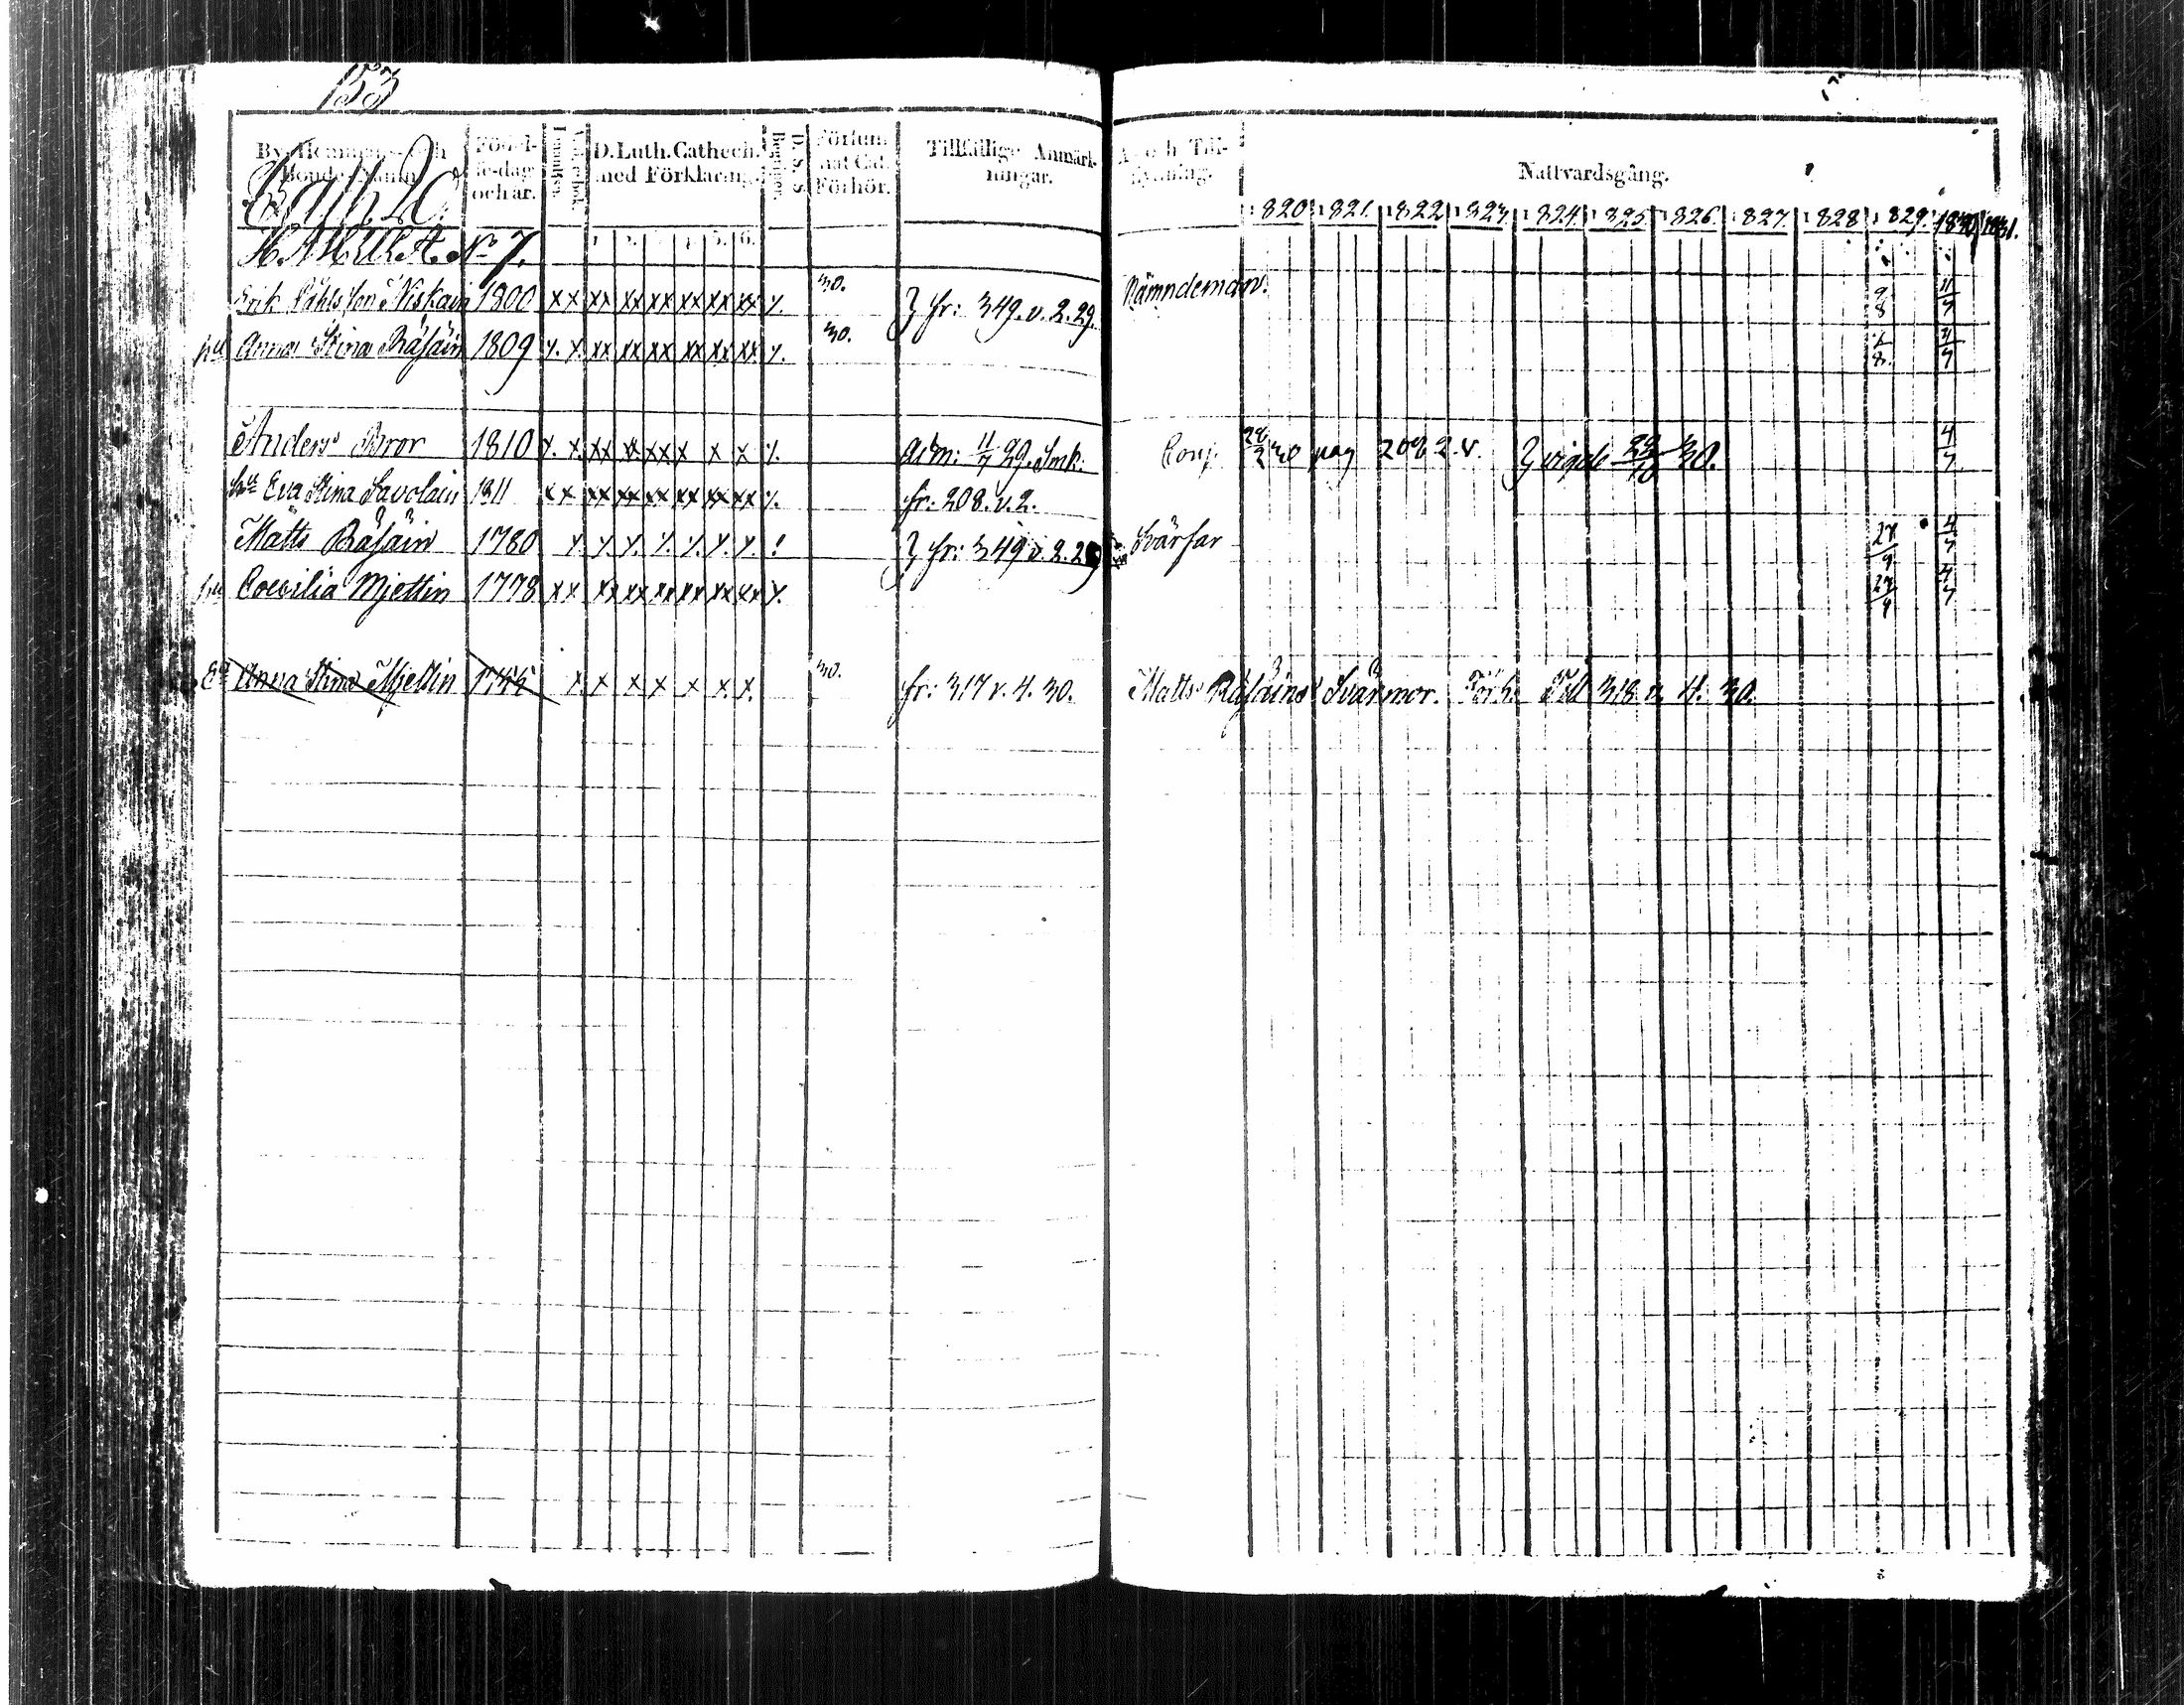 153
By, Hemmans- och Bonde-Namn.
Födel-se-dag och år.
D. Luth. Cathech. med Förklaring.
D. S. S.
Försum-nat Cat. Förhör.
Tillfällige Anmärk-ningar.
Af- och Till-flyttning.
Nattvardsgång.
1820 1821. 1822 1823. 1824. 1825. 1826. 1827. 1828 1829. 1830 1831.
No 7.
Erik Påhlsson Niskain 1800 xx xx xx xx xx xx xx 30. fr: 349. v. 2. 29. Nämndeman. 9/8 11/7
hu Anna Stina Räsäin 1809 xx xx xx xx xx xx 30. 4/7
Anders Bror 1810 adm: 11/7 29. Smk. 30 pag 208 2. v. vigde 30. 4/7
hu Eva Stina Savolain 1811 xx xx xx xx xx xx xx fr: 208. v. 2.
Matts Räsäin 1780 fr: 349 v. 2. 29 Svärfar 27/9 4/7
hu Coecilia Mjettin 1778 xx xx xx xx xx xx xx 27/9 4/7
Anna Stina Mjettin x x x x x x x. 30. fr: 317 v. 4. 30. Matts Räsäins Svärmor. Till 318. v. 4. 30.